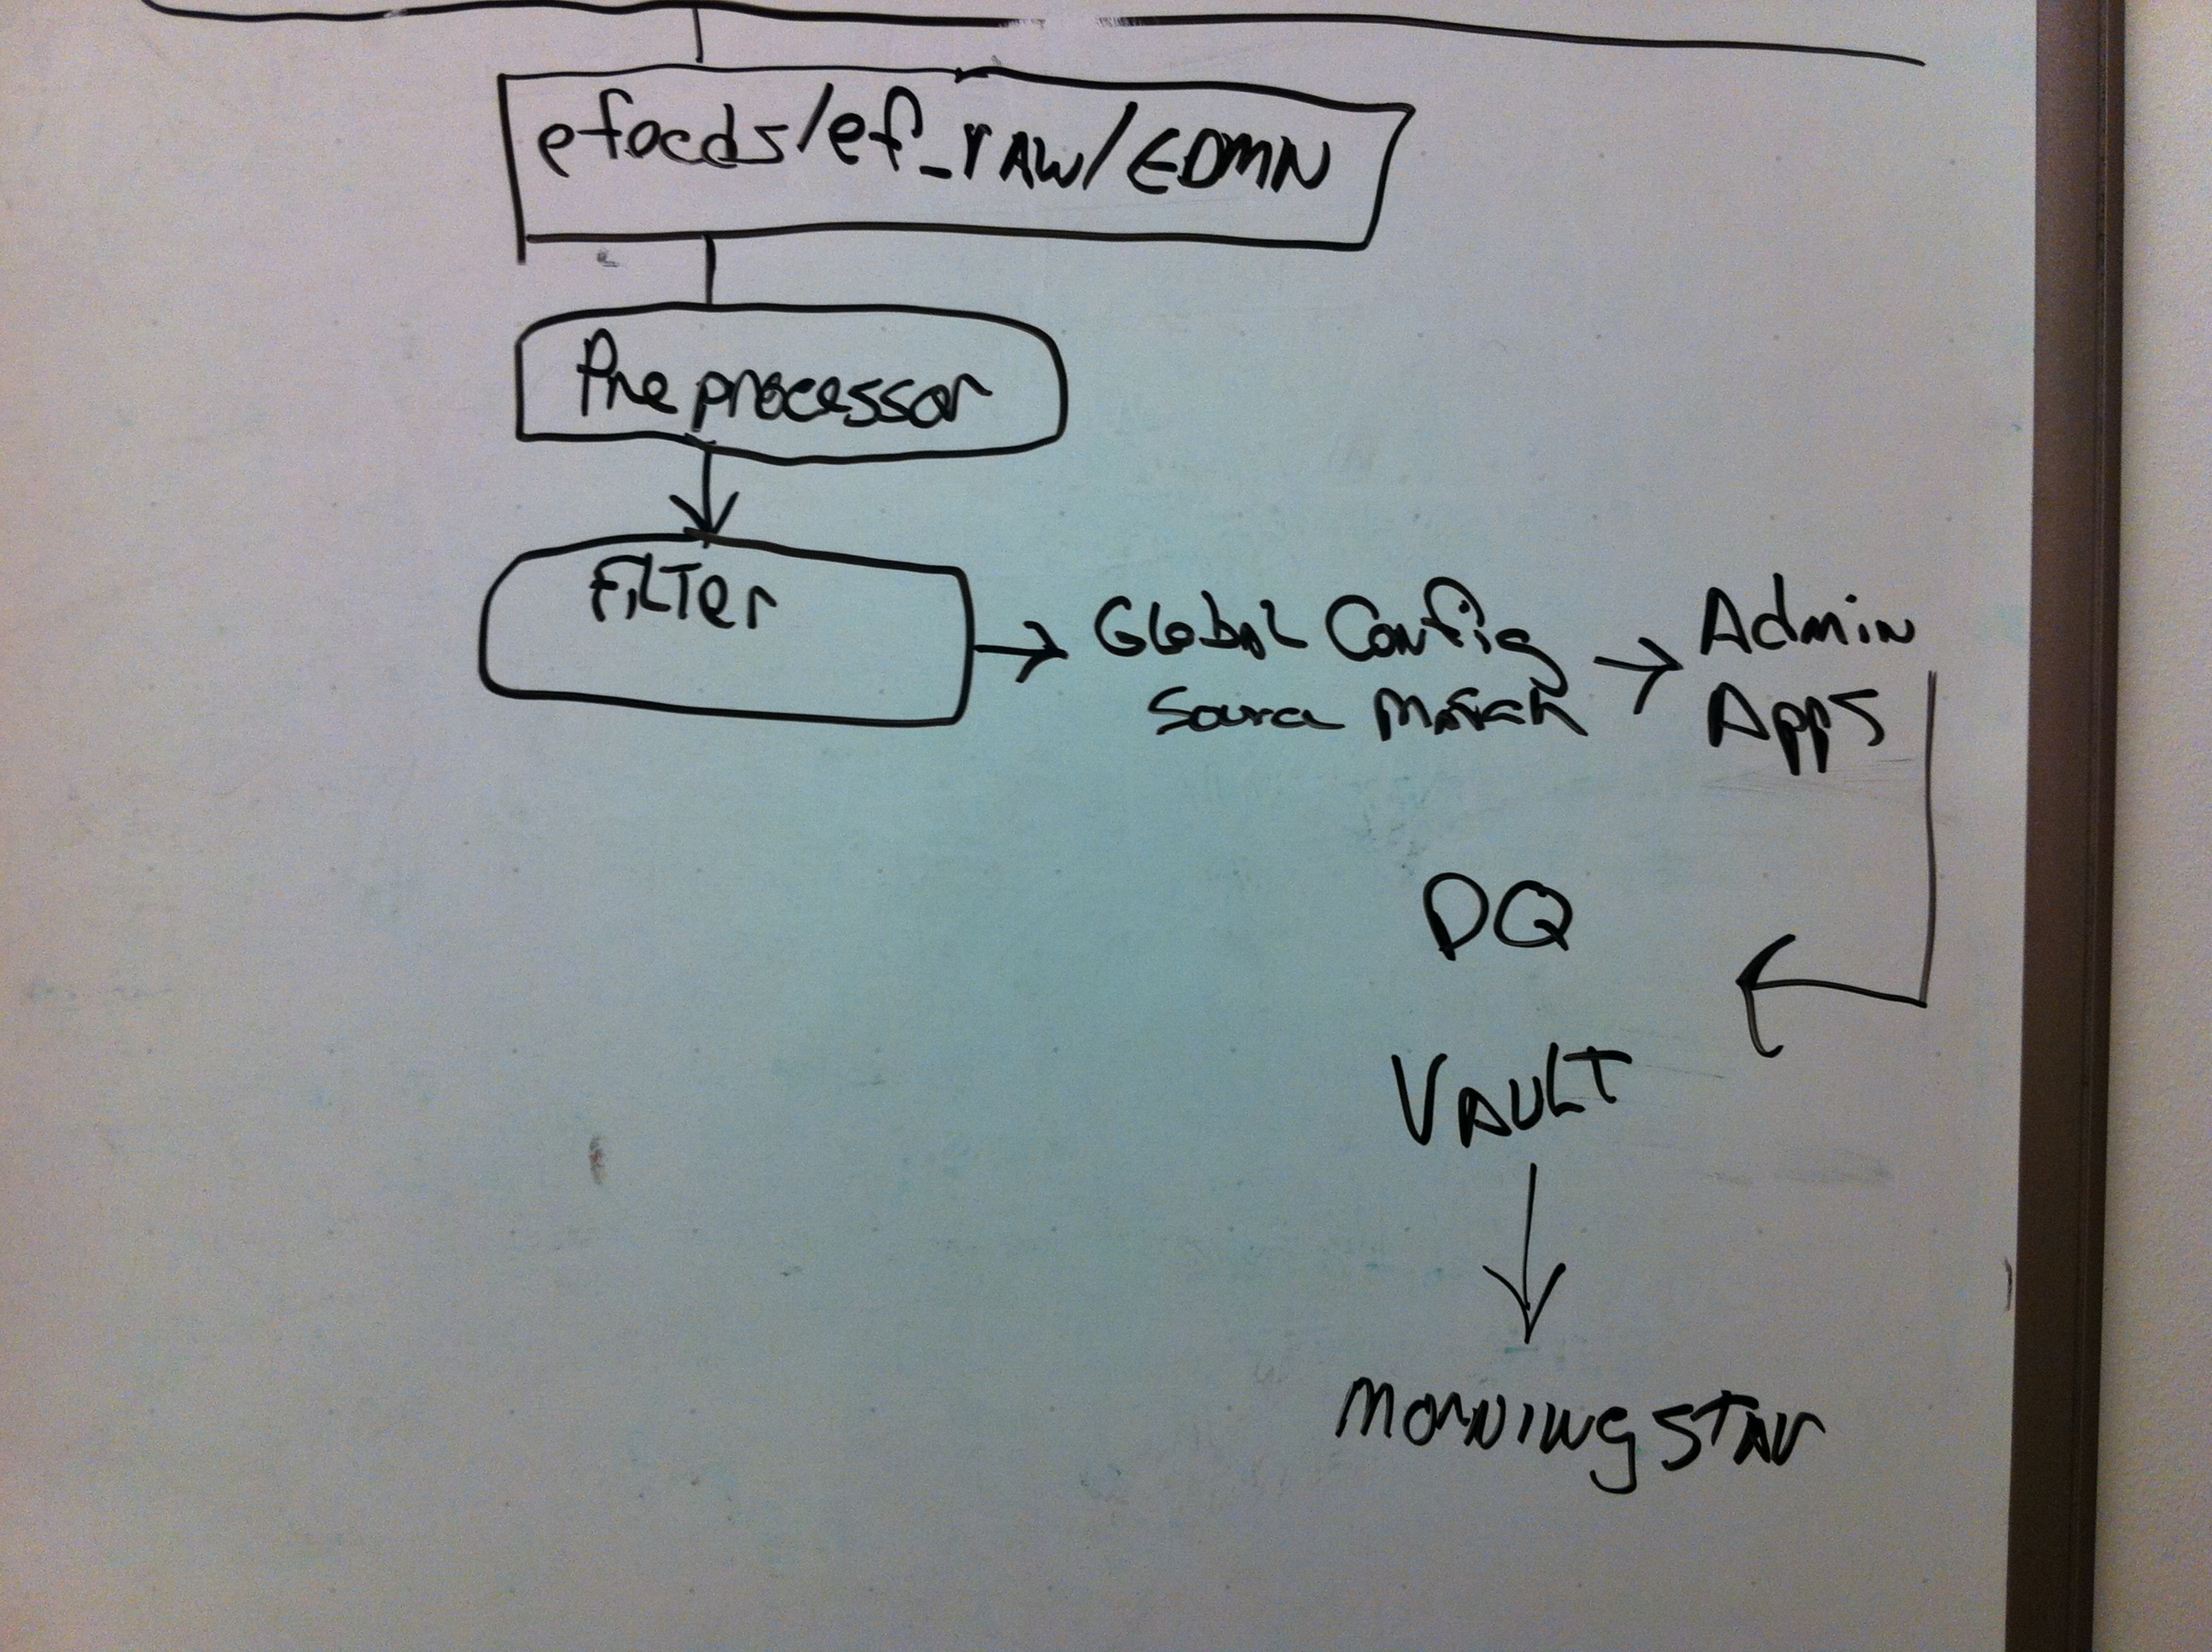 efocds/ef_rAW/EDMN
Pre processor
FiLTer
GLobAL Config
Source MATCh
Admin
Apps
DQ
VAULT
MORNINgSTAr